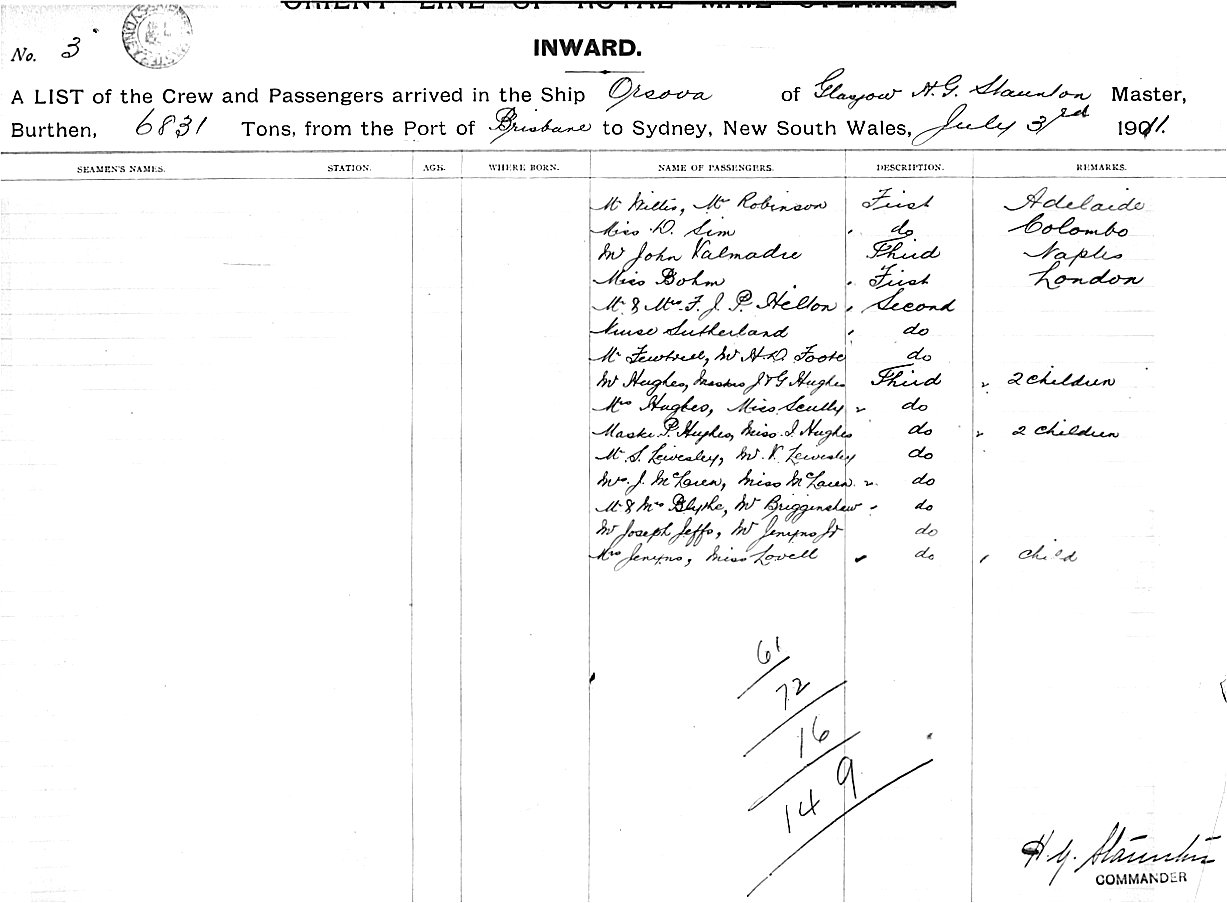 ORIENT LINE OF ROYAL MAIL STEAMERS
No. 3
INWARD.
A LIST of the Crew and Passengers arrived in the Ship Orsova of Glasgow H. G. Staunton Master,
Burthen, 6831 Tons, from the Port of Brisbane to Sydney, New South Wales, July 3rd 1911.
SEAMEN'S NAMES. STATION. AGE. WHERE BORN. NAME OF PASSENGERS. DESCRIPTION. REMARKS.
Mr Willis, Mr Robinson First Adelaide
Miss D. Sim do Colombo
Mr John Valmadre Third Naples
Miss Bohm First London
Mr & Mrs F. J. P. Helton Second
Nurse Sutherland do
Mr Fewtrell, Mr H. D. Foote do
Mr Hughes, Masters J & G Hughes Third " 2 children
Mrs Hughes, Miss Scully " do
Master P. Hughes, Miss I. Hughes do " 2 children
Mr S. Lewesley, Mr V. Lewesley do
Mrs. J. McLaren, Miss McLaren " do
Mr & Mrs Blythe, Mr Brigginshaw do
Mr Joseph Jeffs, Mr Jenyns Jr do
Mrs Jenyns, Miss Lovell " do " child
61
72
16
149
H. G. Staunton
COMMANDER